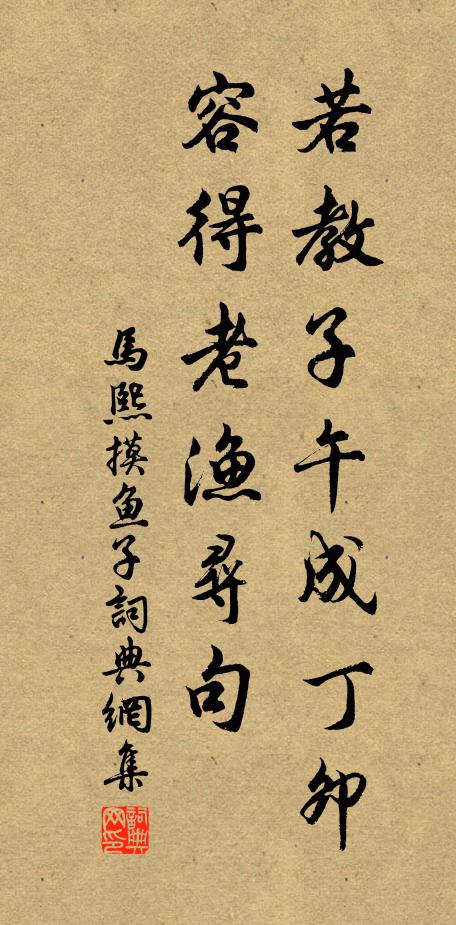 若教子午成丁卯
容得老渔尋句
馬熙摸鱼子詞典網集
詞典网印